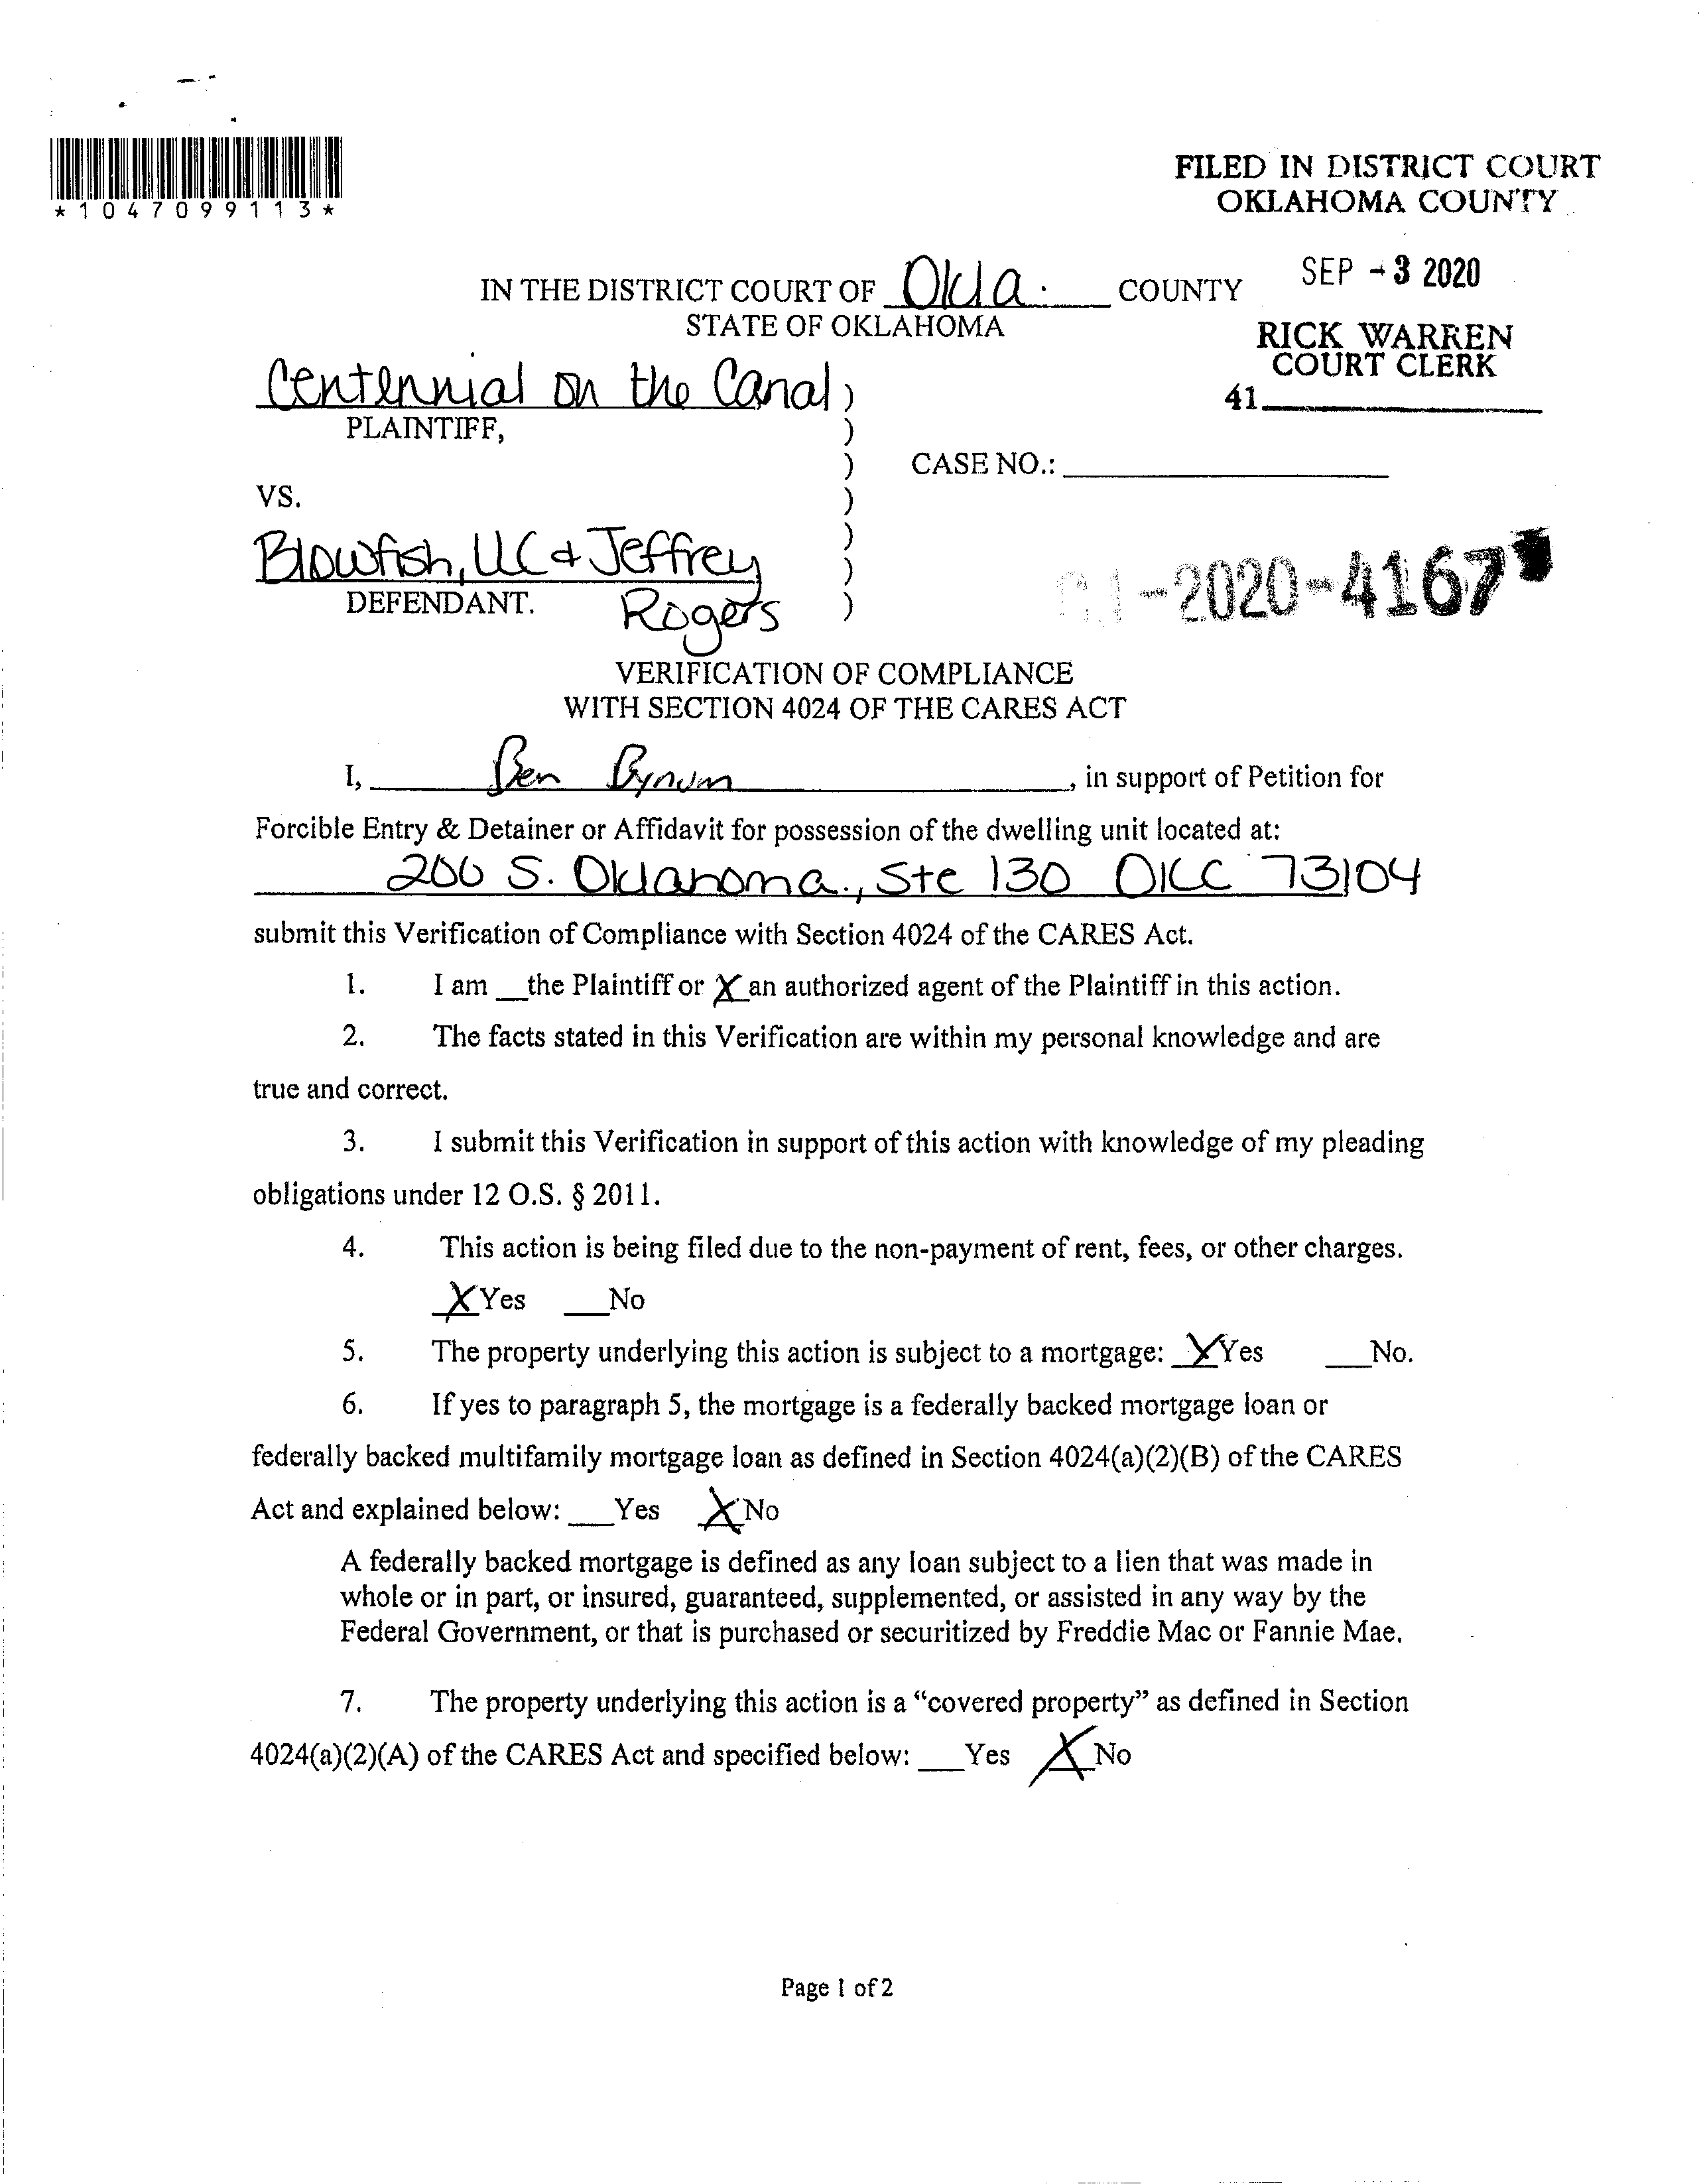 *1047099113*
FILED IN DISTRICT COURT
OKLAHOMA COUNTY
SEP -3 2020
RICK WARREN
COURT CLERK
41
IN THE DISTRICT COURT OF Okla. COUNTY
STATE OF OKLAHOMA
Centennial on the Canal )
PLAINTIFF, )
) CASE NO.:
VS. )
)
Blowfish, LLC & Jeffrey )
DEFENDANT. Rogers )
-2020-4167
VERIFICATION OF COMPLIANCE
WITH SECTION 4024 OF THE CARES ACT
I, Ben Bynum, in support of Petition for
Forcible Entry & Detainer or Affidavit for possession of the dwelling unit located at:
200 S. Oklahoma., Ste 130 OKC 73104
submit this Verification of Compliance with Section 4024 of the CARES Act.
1. I am __the Plaintiff or X an authorized agent of the Plaintiff in this action.
2. The facts stated in this Verification are within my personal knowledge and are
true and correct.
3. I submit this Verification in support of this action with knowledge of my pleading
obligations under 12 O.S. § 2011.
4. This action is being filed due to the non-payment of rent, fees, or other charges.
X Yes __No
5. The property underlying this action is subject to a mortgage: X Yes __No.
6. If yes to paragraph 5, the mortgage is a federally backed mortgage loan or
federally backed multifamily mortgage loan as defined in Section 4024(a)(2)(B) of the CARES
Act and explained below: __Yes X No
A federally backed mortgage is defined as any loan subject to a lien that was made in
whole or in part, or insured, guaranteed, supplemented, or assisted in any way by the
Federal Government, or that is purchased or securitized by Freddie Mac or Fannie Mae.
7. The property underlying this action is a “covered property” as defined in Section
4024(a)(2)(A) of the CARES Act and specified below: __Yes X No
Page 1 of 2